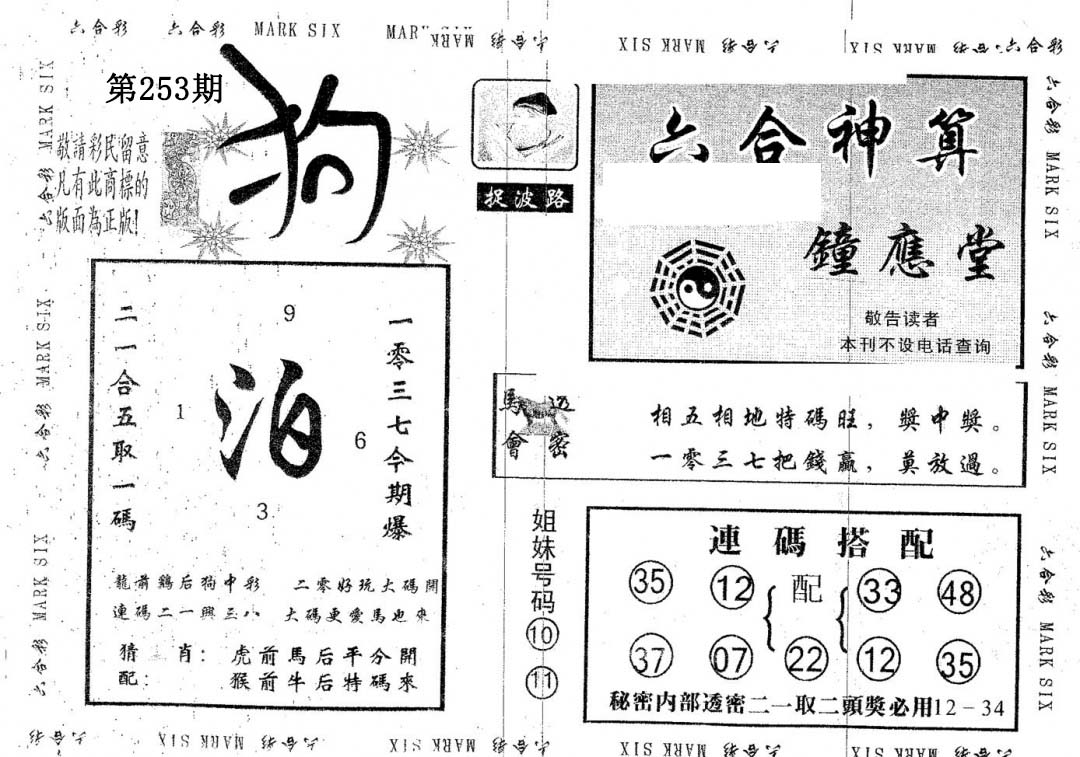 六合彩 六合彩 MARK SIX MARK SIX 六合彩 MARK SIX 六合彩 MARK SIX 六合彩 六合彩
第253期
狗
敬請彩民留意
凡有此商標的
版面為正版!
捉波路
六合神算
鐘應堂
敬告读者
本刊不设电话查询
二一合五取一碼
9
1
泊
6
3
一零三七今期爆
龍前鷄后狗中彩 二零好玩大碼開
連碼二一興三八 大碼更愛馬也來
猜三肖: 虎前馬后平分開
配: 猴前牛后特碼來
馬會
透密
相五相地特碼旺,獎中獎。
一零三七把錢贏,莫放過。
姐妹号码
10
11
連碼搭配
35 12 配 33 48
37 07 22 12 35
秘密内部透密二一取二頭獎必用12-34
六合彩 MARK SIX 六合彩 MARK SIX 六合彩 MARK SIX
六合彩 MARK SIX 六合彩 MARK SIX 六合彩 MARK SIX
六合彩 MARK SIX 六合彩 MARK SIX 六合彩 MARK SIX 六合彩 MARK SIX 六合彩